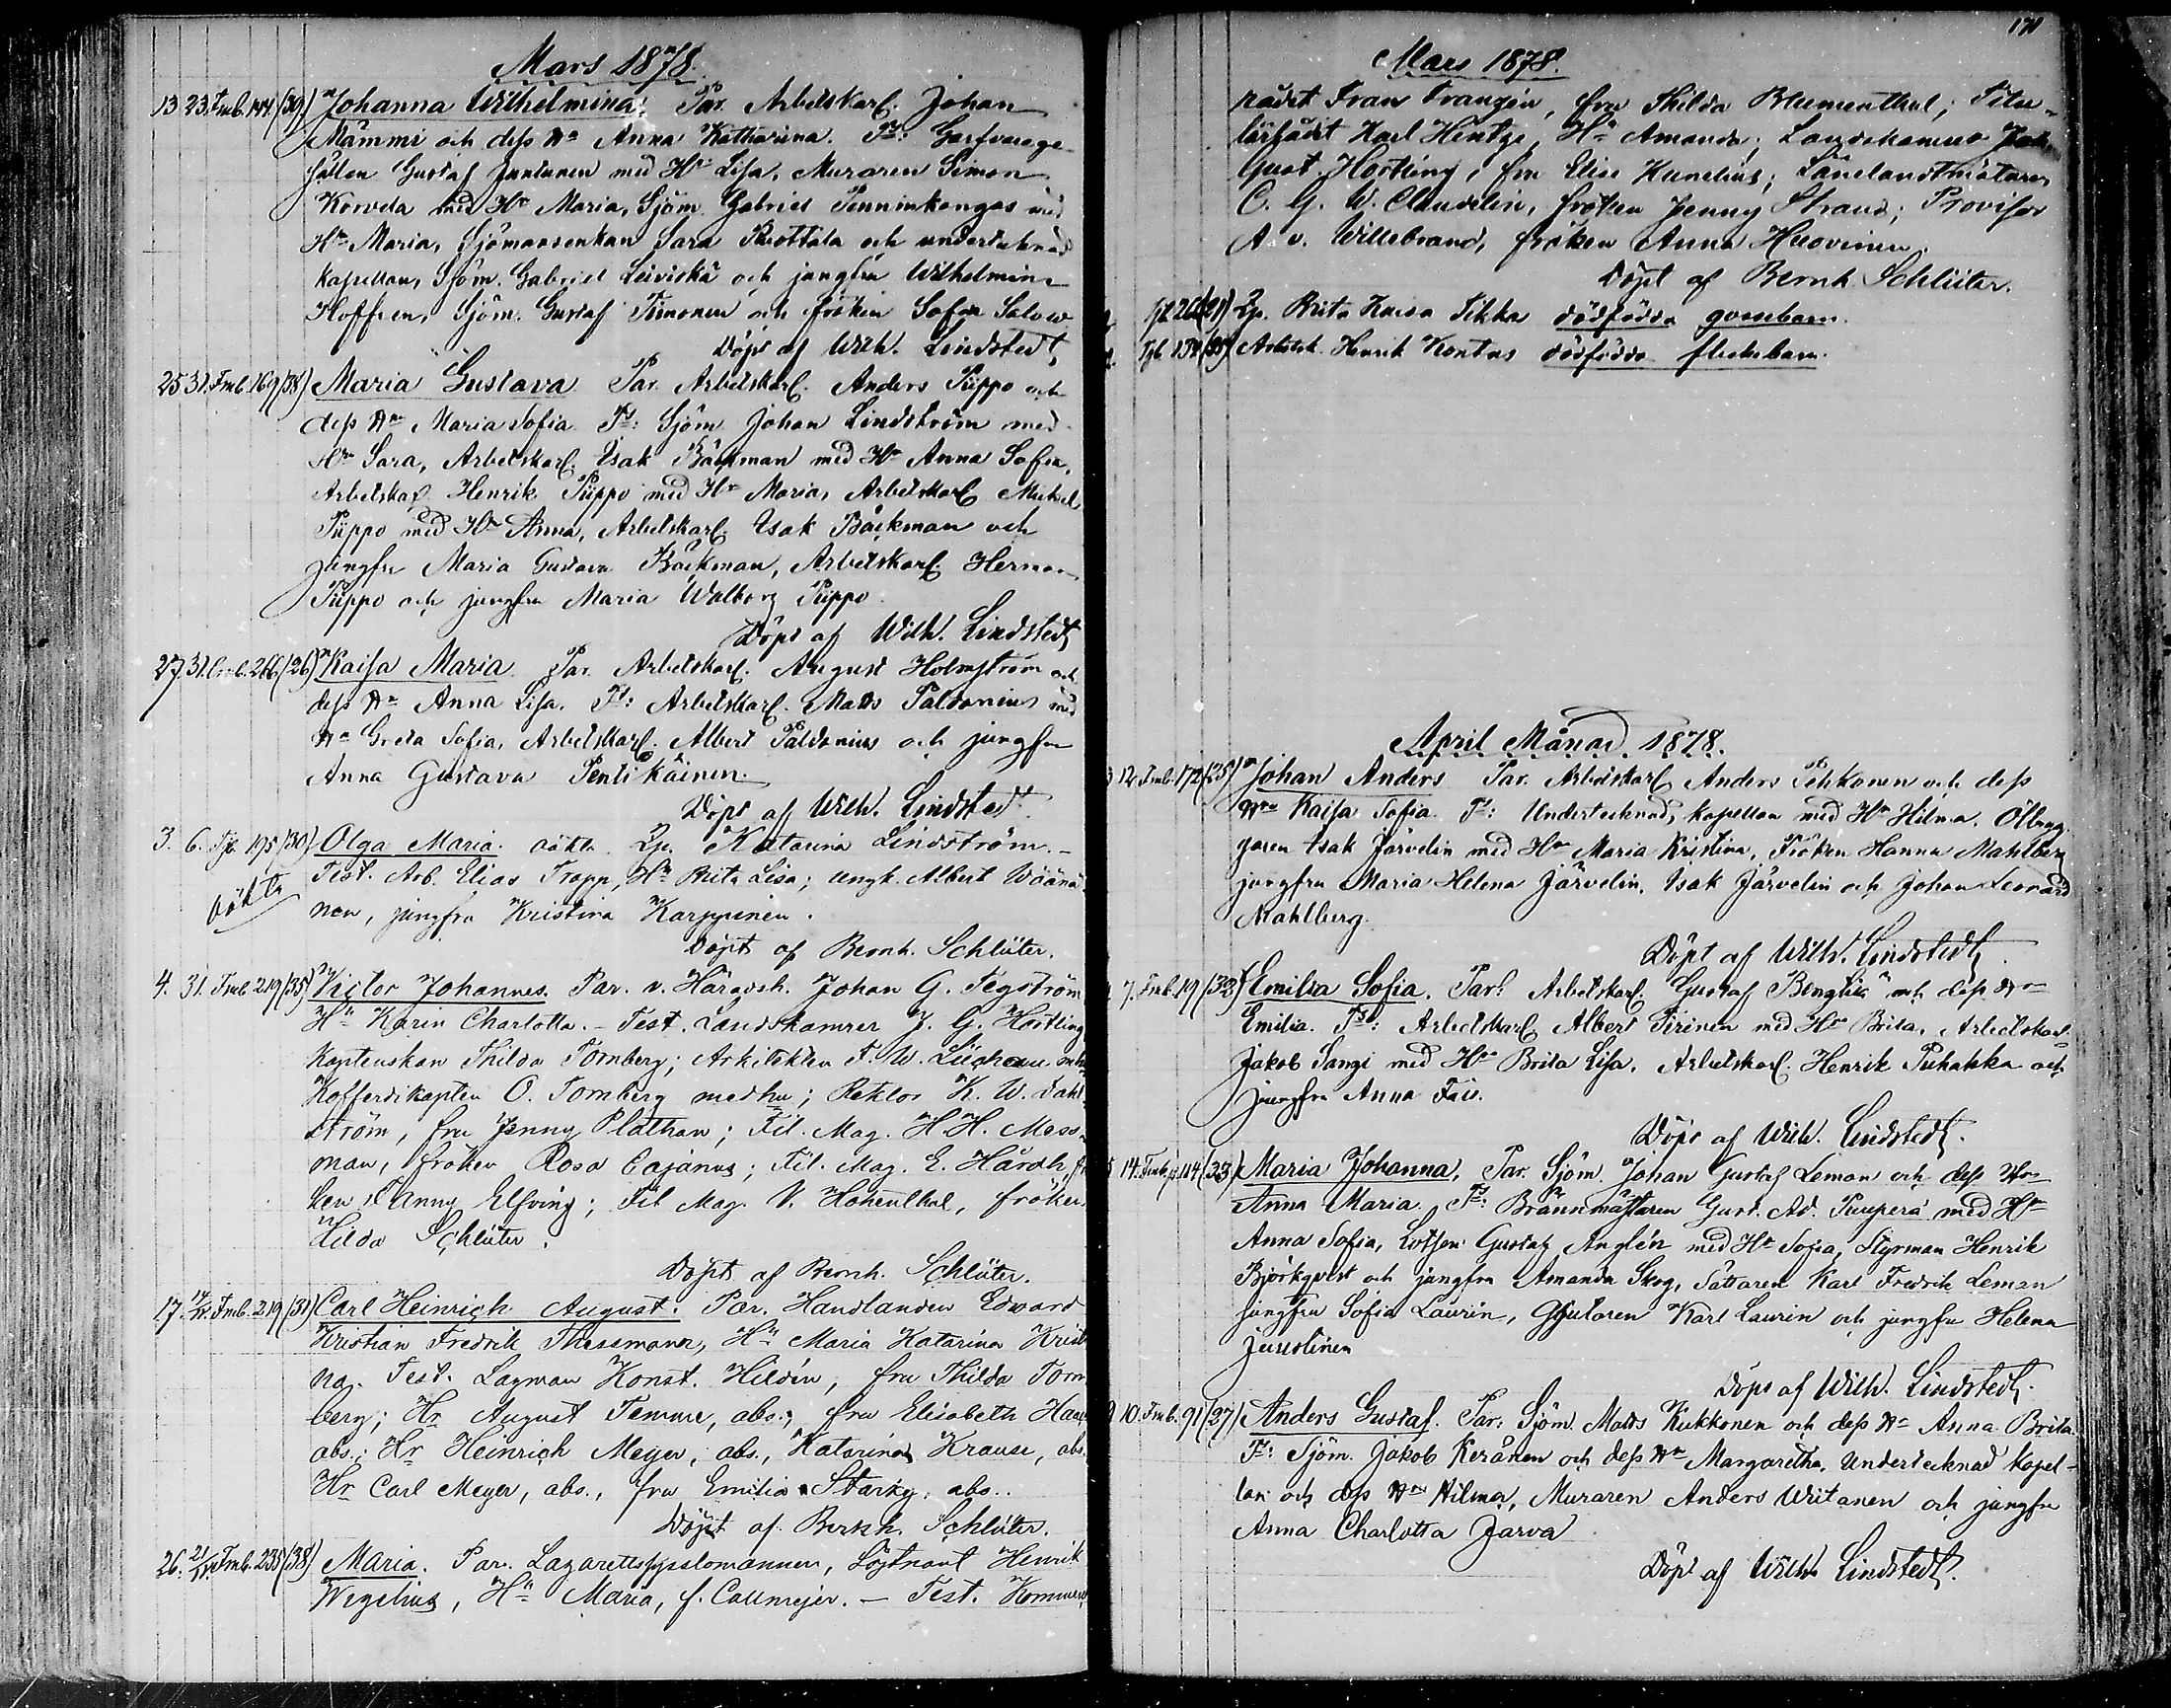 Mars 1878.
13 23. Fmb. 144 (39) Johanna Wilhelmina. Par. Arbetskarl. Johan
Mämmi och dess Hu Anna Katharina. Ts: Garfvarege-
sällen Gustaf Juntunen med Hu Lisa, Muraren Simon
Korvela med Hu Maria, Sjöm. Gabriel Penninkangas med
Hu Maria, Sjömansenkan Sara Ruottala och undertecknad
kapellan, Sjöm. Gabriel Leiviskä och jungfru Wilhelmina
Hoffren, Sjöm. Gustaf Timonen och fröken Sofia Salow
Döpt af Wilh. Lindstedt
25 31. Fmb. 169 (38) Maria Gustava Par. Arbetskarl. Anders Piippo och
dess Hu Maria Sofia. Ts: Sjöm. Johan Lindström med
Hu Sara, Arbetskarl. Isak Bäckman med Hu Anna Sofia,
Arbetskarl. Henrik Piippo med Hu Maria, Arbetskarl Mickel
Piippo med Hu Anna, Arbetskarl. Isak Bäckman och
jungfru Maria Gustava Bäckman, Arbetskarl. Herman
Piippo och jungfru Maria Walborg Piippo
Döpt af Wilh. Lindstedt
27. 31. 266 (26) Kaisa Maria. Par. Arbetskarl. August Holmström och
dess Hu Anna Lisa. Ts: Arbetskarl. Matts Paldanius med
Hu Greta Sofia, Arbetskarl. Albert Paldanius och jungfru
Anna Gustava Pentikäinen.
Döpt af Wilh. Lindstedt
3. 6. 195 (30) Olga Maria. oäkta. Lp. Katarina Lindström.–
oäkta
Test. Arb. Elias Trapp, Hu Brita Lisa; ungk. Albert Wäänä-
nen, jungfru Kristina Karppinen.
Döpt af Bernh. Schlüter.
4. 31. Fmb 219 (35) Victor Johannes. Par. v. Häradsh. Johan G. Tegström
Hu Karin Charlotta. – Test. Landskamrer J. G. Hortling
Kaptenskan Thilda Tornberg; Arkitekten F. W. Lüchou
Kofferdikapten O. Tornberg med hu; Rektor K. W. Dahl-
ström, fru Jenny Plathan; Fil. Mag. H. H. Moss-
man, fröken Rosa Cajanus; Fil. Mag. E. Hårdh, frö-
ken Fanny Elfving; Fil Mag. V. Hohenthal, fröken
Hilda Schlüter.
Döpt af Bernh. Schlüter.
17. 14/IV. Fmb. 219 (31) Carl Heinrich August. Par. Handlanden Edward
Kristian Fredrik Thessmann, Hu Maria Katarina Kristi
na. Test. Lagman Konst. Hildén, fru Thilda Torn
berg; Hr August Temme, abs., fru Elisabeth
abs.; Hr Heinrich Meyer, abs., Katarina Krause, abs.
Hr Carl Meyer, abs., fru Emilia Starky, abs..
Döpt af Bernh. Schlüter.
26. 21/IV. Fmb. 235 (38) Maria. Par. Lazarettssysslomannen, Löjtnant Henrik
Wegelius, Hu Maria, f. Calmejer. – Test. Kommers
171
Mars 1878.
rådet Frans Franzén, fru Thilda Blumenthal; Titu-
lärrådet Karl Hentze, Hu Amanda; Landskamrer Joh.
Gust. Hortling, fru Elise Kunelius; Länelandtmätare
C. G. W. Claudelin, fröken Jenny Strand; Provisor
A. v. Willebrand, fröken Anna Huovinen.
Döpt af Bernh. Schlüter.
Lp. Brita Kaisa Tikka dödfödda gossebarn.
Arbetsk. Henrik Kontas dödfödda flickebarn.
April Månad 1878.
12. Fmb. 172 (25) Johan Anders Par. Arbetskarl Anders Pehkonen och dess
Hu Kaisa Sofia. Ts: Undertecknad, kapellan med Hu Hilma. Ölbryg-
garen Isak Järvelin med Hu Maria Kristina, Fröken Hanna Mahlberg
jungfru Maria Helena Järvelin, Isak Järvelin och Johan Leonard
Mahlberg.
Döpt af Wilh. Lindstedt.
7. Fmb. 19 (32) Emilia Sofia. Par: Arbetskarl. Gustaf Bengtlia och dess Hu
Emilia. Ts: Arbetskarl. Albert Tirinen med Hu Brita, Arbetskarl
Jakob Sangi med Hu Brita Lisa, Arbetskarl. Henrik Puhakka och
jungfru Anna
Döpt af Wilh. Lindstedt.
14. 114 (23) Maria Johanna. Par. Sjöm. Johan Gustaf Leman och dess Hu
Anna Maria. Ts: Brännmästaren Gust. Ad. Puuperä med Hu
Anna Sofia, Lotsen Gustaf Anglén med Hu Sofia, Styrman Henrik
Björkqvist och jungfru Amanda Skog, Sättaren Karl Fredrik Leman
jungfru Sofia Laurin, Gjutaren Karl Laurin och jungfru Helena
Juustinen
Döpt af Wilh. Lindstedt.
10. Fmb. 91 (27) Anders Gustaf. Par: Sjöm. Matts Kukkonen och dess Hu Anna Brita.
Ts: Sjöm. Jakob Keränen och dess Hu Margaretha. Undertecknad kapel-
lan och dess Hu Hilma, Muraren Anders Wiitanen och jungfru
Anna Charlotta Jarva
Döpt af Wilh. Lindstedt.